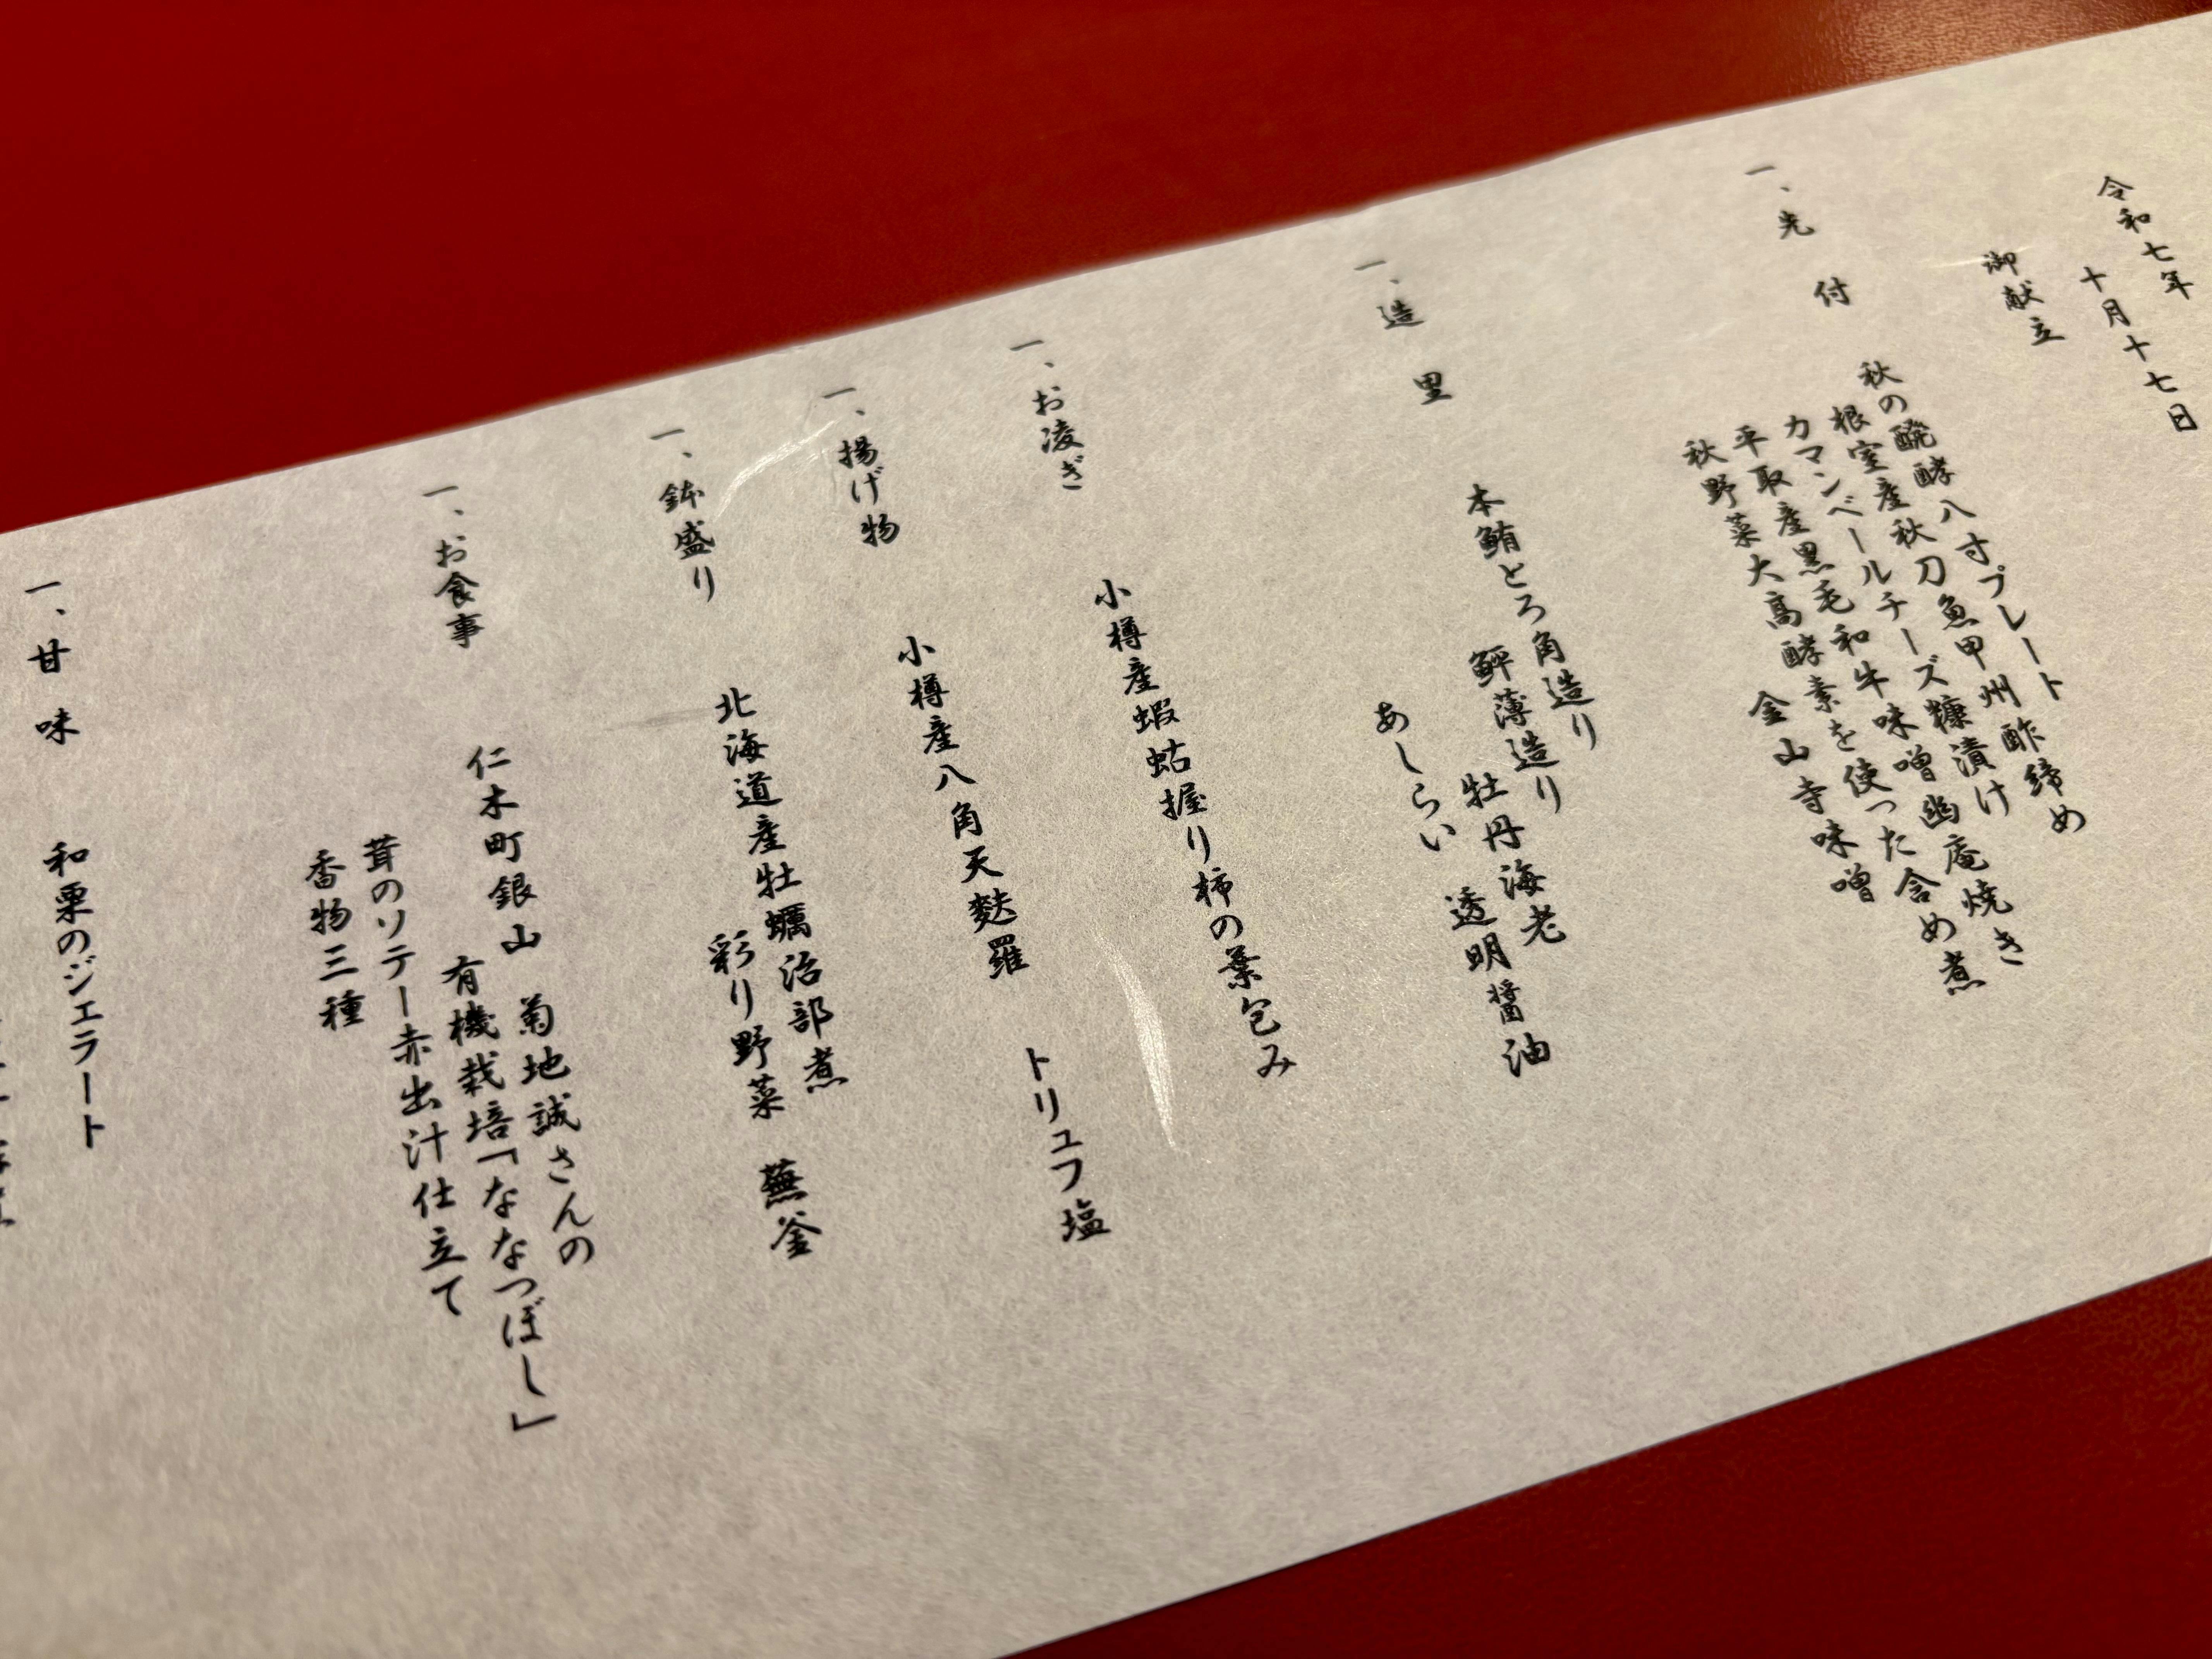 令和七年
十月十七日
御献立
一、先 付
秋の醗酵八寸プレート
根室産秋刀魚甲州酢締め
カマンベールチーズ糠漬け
平取産黒毛和牛味噌幽庵焼き
秋野菜大高酵素を使った含め煮
金山寺味噌
一、造 里
本鮪とろ角造り
鮃薄造り
牡丹海老
あしらい 透明醤油
一、お凌ぎ
小樽産蝦蛄握り柿の葉包み
一、揚げ物
小樽産八角天麩羅 トリュフ塩
一、鉢盛り
北海道産牡蠣治部煮
彩り野菜 蕪釜
一、お食事
仁木町銀山 菊地誠さんの
有機栽培「ななつぼし」
茸のソテー赤出汁仕立て
香物三種
一、甘 味
和栗のジェラート